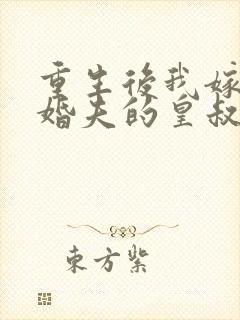 重生後我嫁
婚夫的皇叔
東方紫